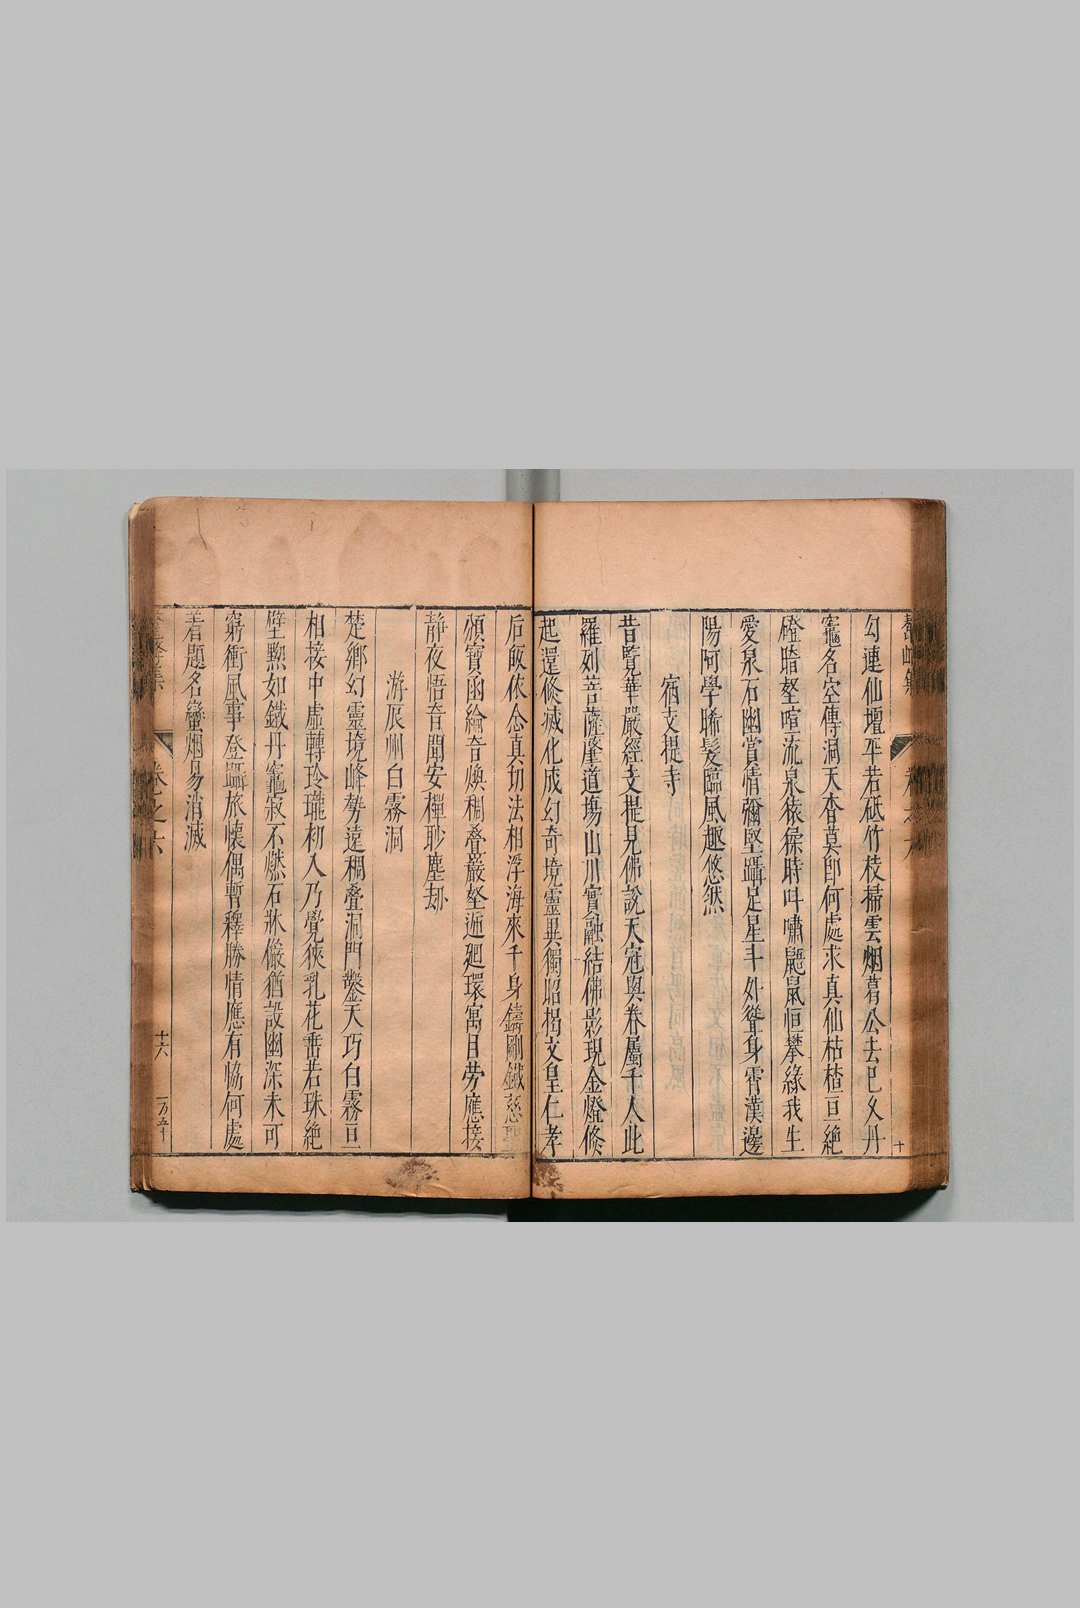 勾連仙壇平若砥竹枝掃雲烟葛公去已久丹
竈名空傳洞天杳莫卽何處求真仙枯楂亘絶
磴暗壑喧流泉猿猱時呌嘯鼯鼠恒攀緣我生
愛泉石幽賞情彌堅躡足星斗外聳身霄漢邊
陽阿學晞髮臨風趣悠然
宿支提寺
昔覽華嚴經支提見佛說天冠與眷屬千人此
羅列菩薩肇道塲山川實融結佛影現金燈倏
起還倏滅化成幻奇境靈異獨昭揭文皇仁孝
后皈依念真切法相浮海來千身鑄剛鐵慈聖
頒寶函繪音煥稠叠巖壑迤𢌞環寓目勞應接
静夜悟音聞安禪耿塵劫
游辰州白霧洞
楚鄉幻靈境峰勢遠稠叠洞門鑿天巧白霧亘
相接中虛轉玲瓏初入乃覺狹乳花垂若珠絶
壁黝如鐵丹竈寂不燃石牀儼猶設幽深未可
窮衝風事登躡旅懷偶暫釋勝情應有恊何處
着題名蠻烟易消滅
卷之六
十六